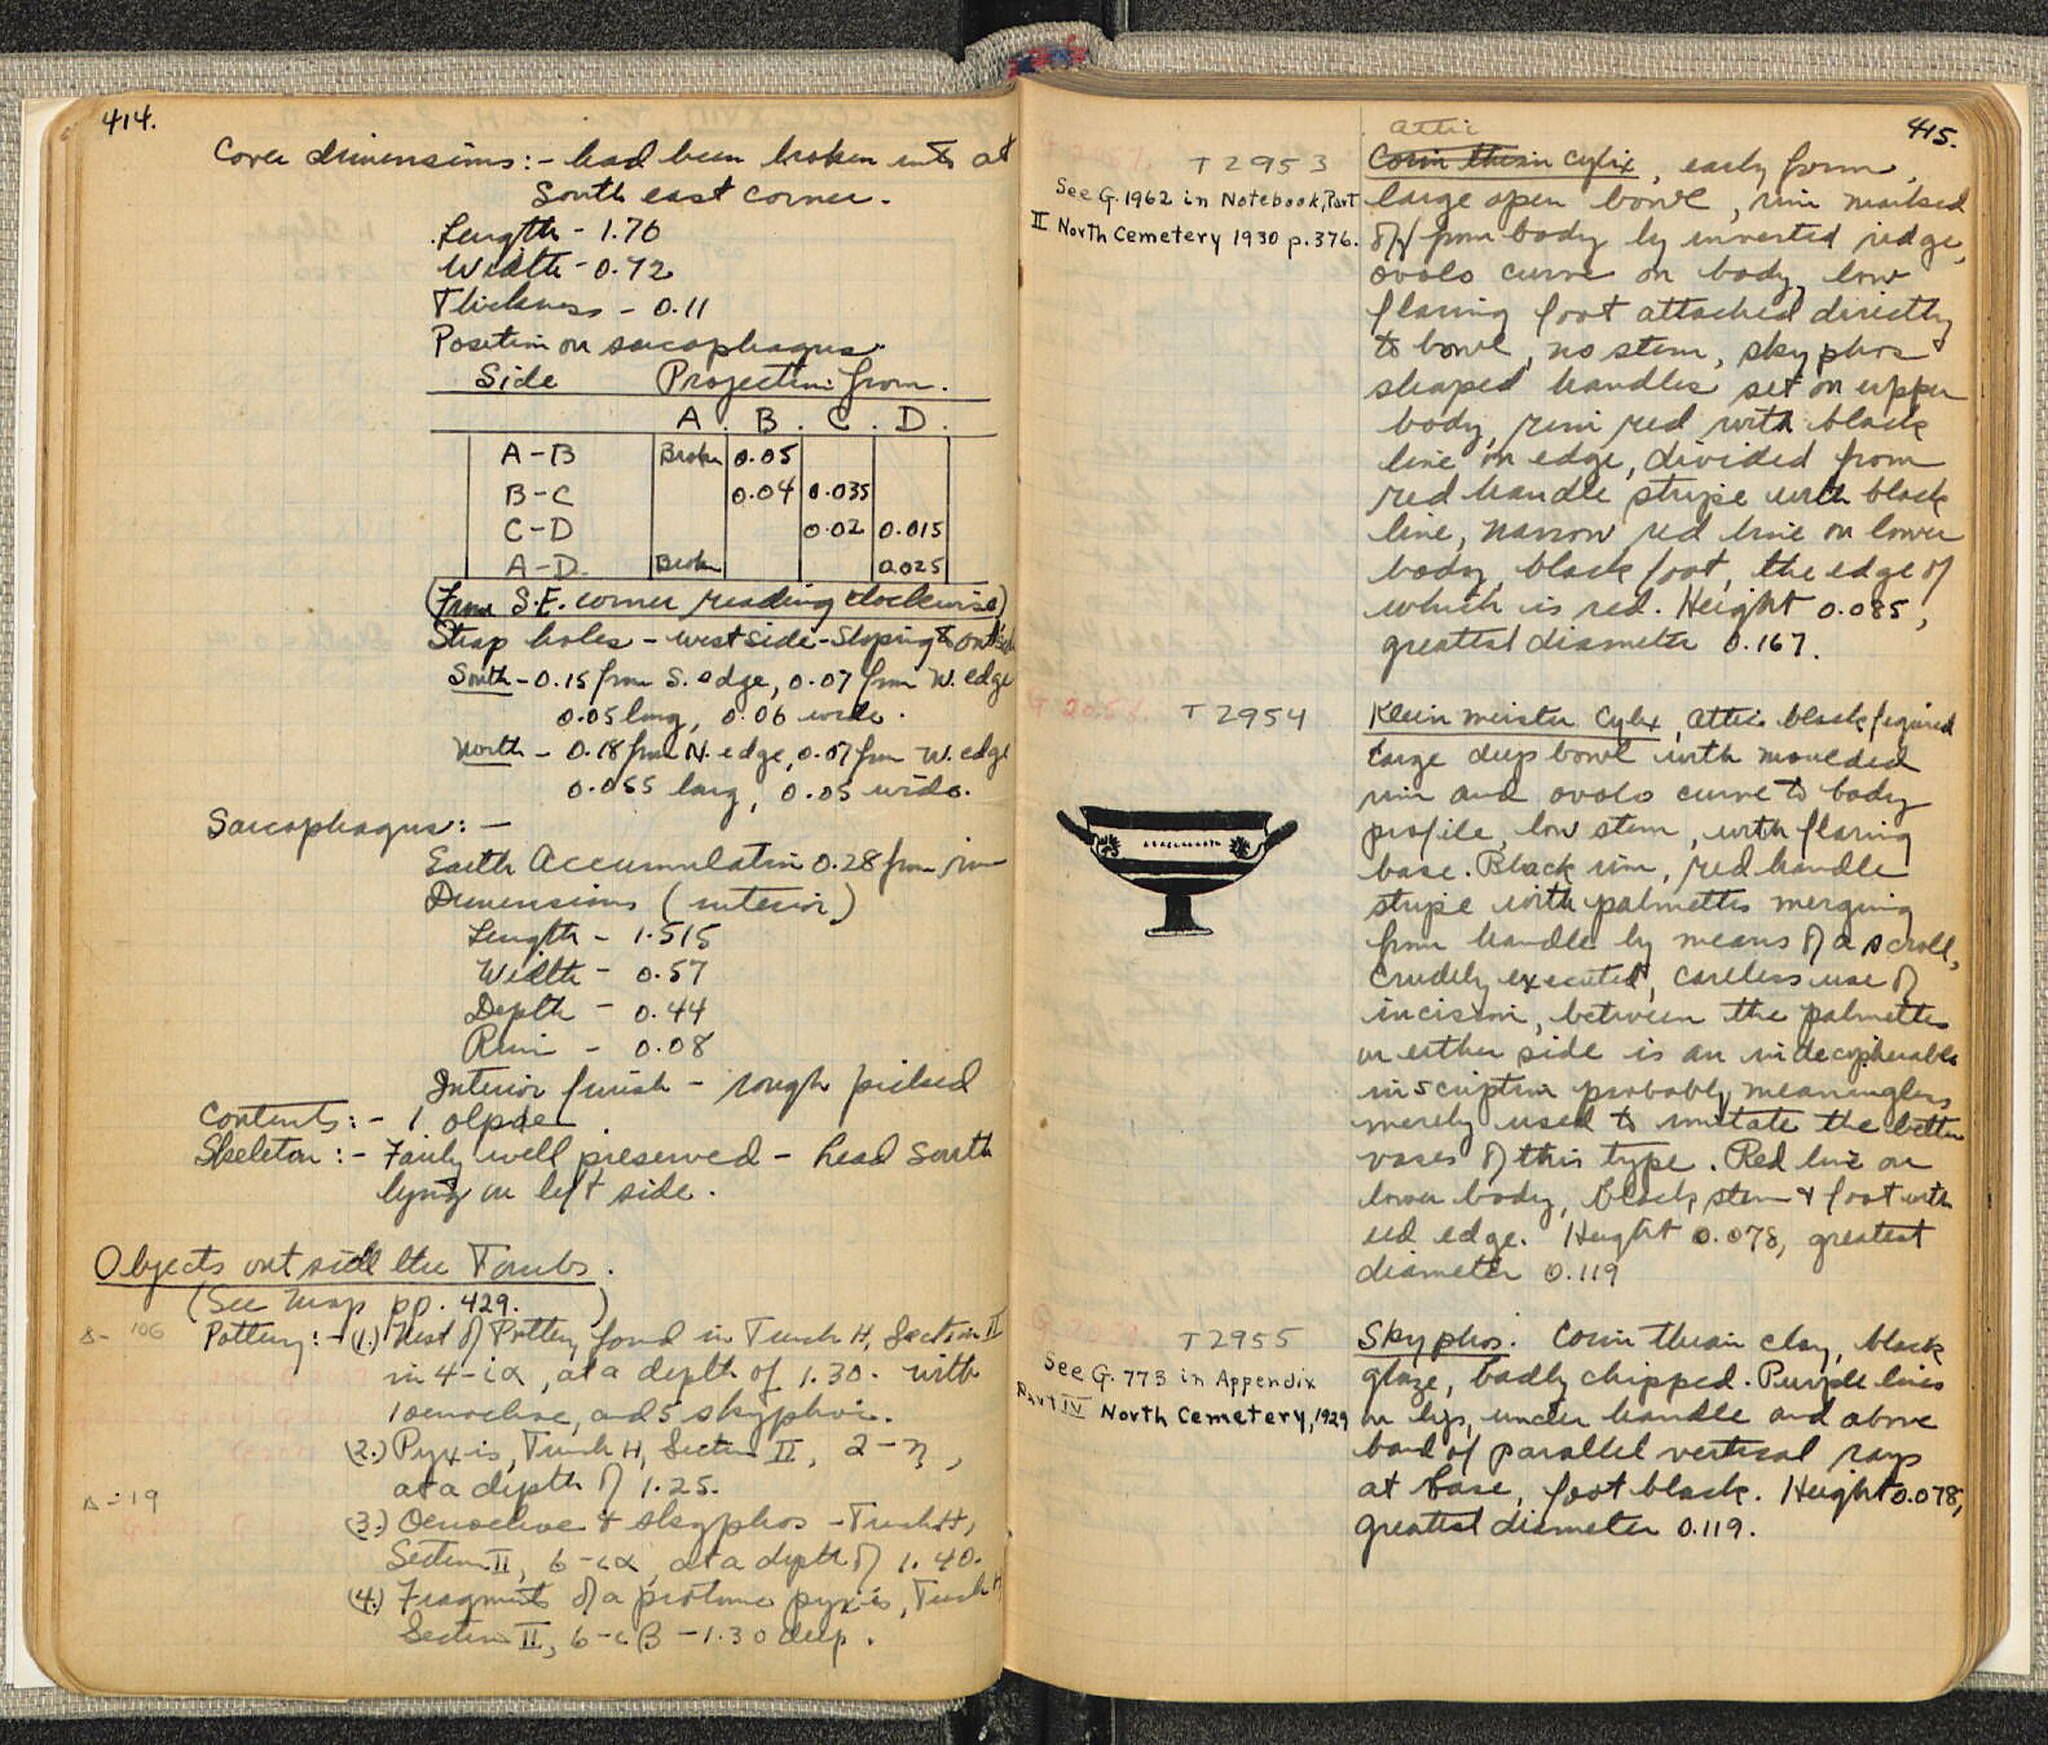 414.
Cover dimensions:- had been broken into at
South east corner.
Length - 1.76
Width - 0.72
Thickness - 0.11
Position on sarcophagus:-
Side Projection from.
A. B. C. D.
A-B Broken 0.05
B-C 0.04 0.035
C-D 0.02 0.015
A-D. Broken 0.025
(From S.E. corner reading clockwise)
Strap holes - west side - sloping to outside
South - 0.15 from S. edge, 0.07 from W. edge
0.05 long, 0.06 wide.
North - 0.18 from N. edge, 0.07 from W. edge
0.055 long, 0.05 wide.
Sarcophagus:-
Earth Accumulation 0.28 from rim
Dimensions (interior)
Length - 1.515
Width - 0.57
Depth - 0.44
Rim - 0.08
Interior finish - rough picked
Contents:- 1 olpae.
Skeleton:- Fairly well preserved - head south
lying on left side.
Objects outside the Tombs.
(See map pp. 429. )
Δ- 106 Pottery:- (1.) Nest of Pottery found in Trench H, Section II
in 4-ια, at a depth of 1.30. with
1 oenochoe, and 5 skyphoi.
(2.) Pyxis, Trench H, Section II, 2-η,
at a depth of 1.25.
Δ-19
(3.) Oenochoe & skyphos - Trench H,
Section II, 6-ια, at a depth of 1.40.
(4.) Fragments of a protome pyxis, Trench H
Section II, 6-ιβ - 1.30 deep.
415.
Attic
T 2953 Corinthian Cylix, early form,
See G. 1962 in Notebook, Part
II North Cemetery 1930 p. 376.
large open bowl, rim marked
off from body by inverted ridge,
ovolo curve on body, low
flaring foot attached directly
to bowl, no stem, skyphos
shaped handles set on upper
body, rim red with black
line on edge, divided from
red handle stripe with black
line, narrow red line on lower
body, black foot, the edge of
which is red. Height 0.085,
greatest diameter 0.167.
T 2954 Klein meister Cylix, Attic black figured
large deep bowl with moulded
rim and ovolo curve to body
profile, low stem, with flaring
base. Black rim, red handle
stripe with palmettes merging
from handle by means of a scroll,
crudely executed, careless use of
incision, between the palmettes
on either side is an indecipherable
inscription probably meaningless
merely used to imitate the better
vases of this type. Red line on
lower body, black stem & foot with
red edge. Height 0.078, greatest
diameter 0.119
T 2955 Skyphos. Corinthian clay, black
See G. 773 in Appendix
Part IV North Cemetery, 1929
glaze, badly chipped. Purple lines
on lip, under handle and above
band of parallel vertical rays
at base, foot black. Height 0.078,
greatest diameter 0.119.